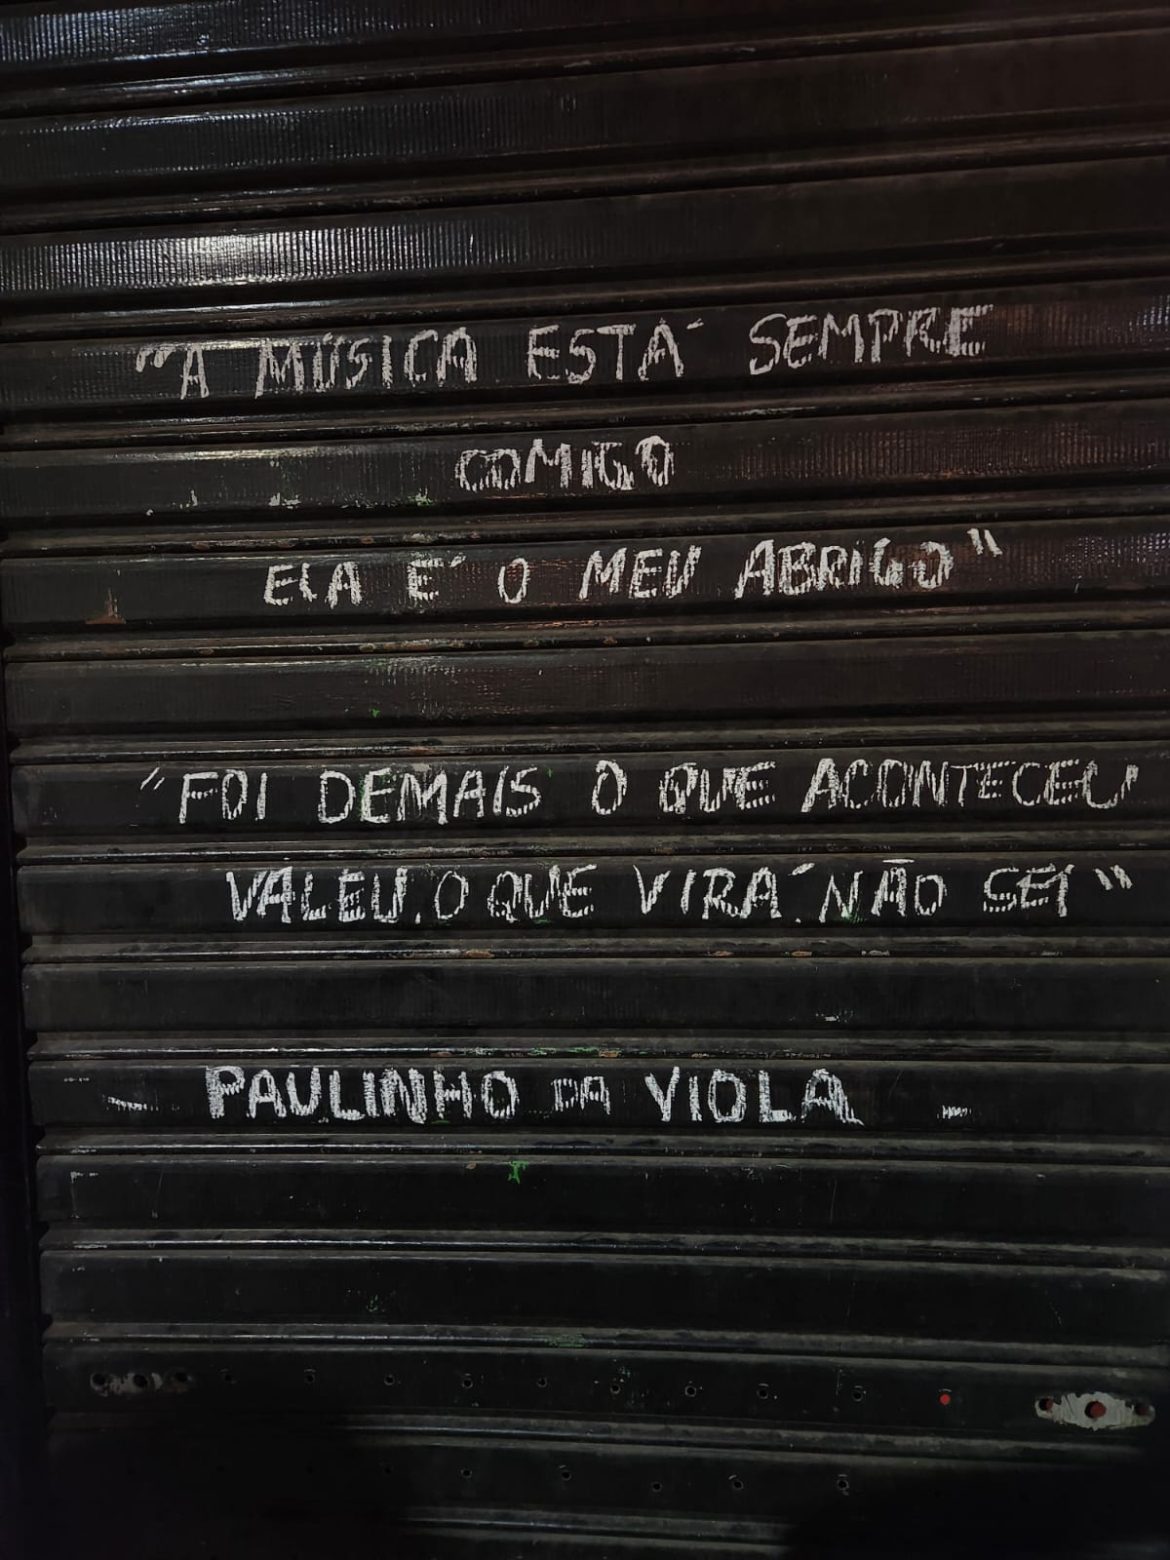 "A MÚSICA ESTÁ SEMPRE
COMIGO
ELA É O MEU ABRIGO"
"FOI DEMAIS O QUE ACONTECEU
VALEU. O QUE VIRÁ. NÃO SEI"
- PAULINHO DA VIOLA -